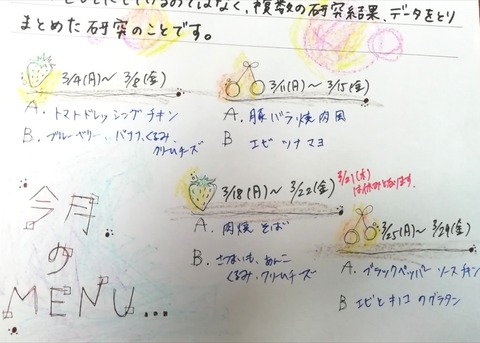 にしているのではなく、複数の研究結果、データをとり
まとめた研究のことです。
3/4(月)〜 3/8(金)
A. トマトドレッシングチキン
B. ブルーベリー、バナナ、くるみ、
クリームチーズ
3/11(月)〜 3/15(金)
A. 豚バラ焼肉
B エビツナマヨ
3/18(月)〜 3/22(金)
3/21(木)
はお休みとなります。
A. 肉焼そば
B. さつまいも、あんこ
くるみ、クリームチーズ
3/25(月)〜 3/29(金)
A. ブラックペッパーソースチキン
B エビとキノコのグラタン
今月
の
MENU...